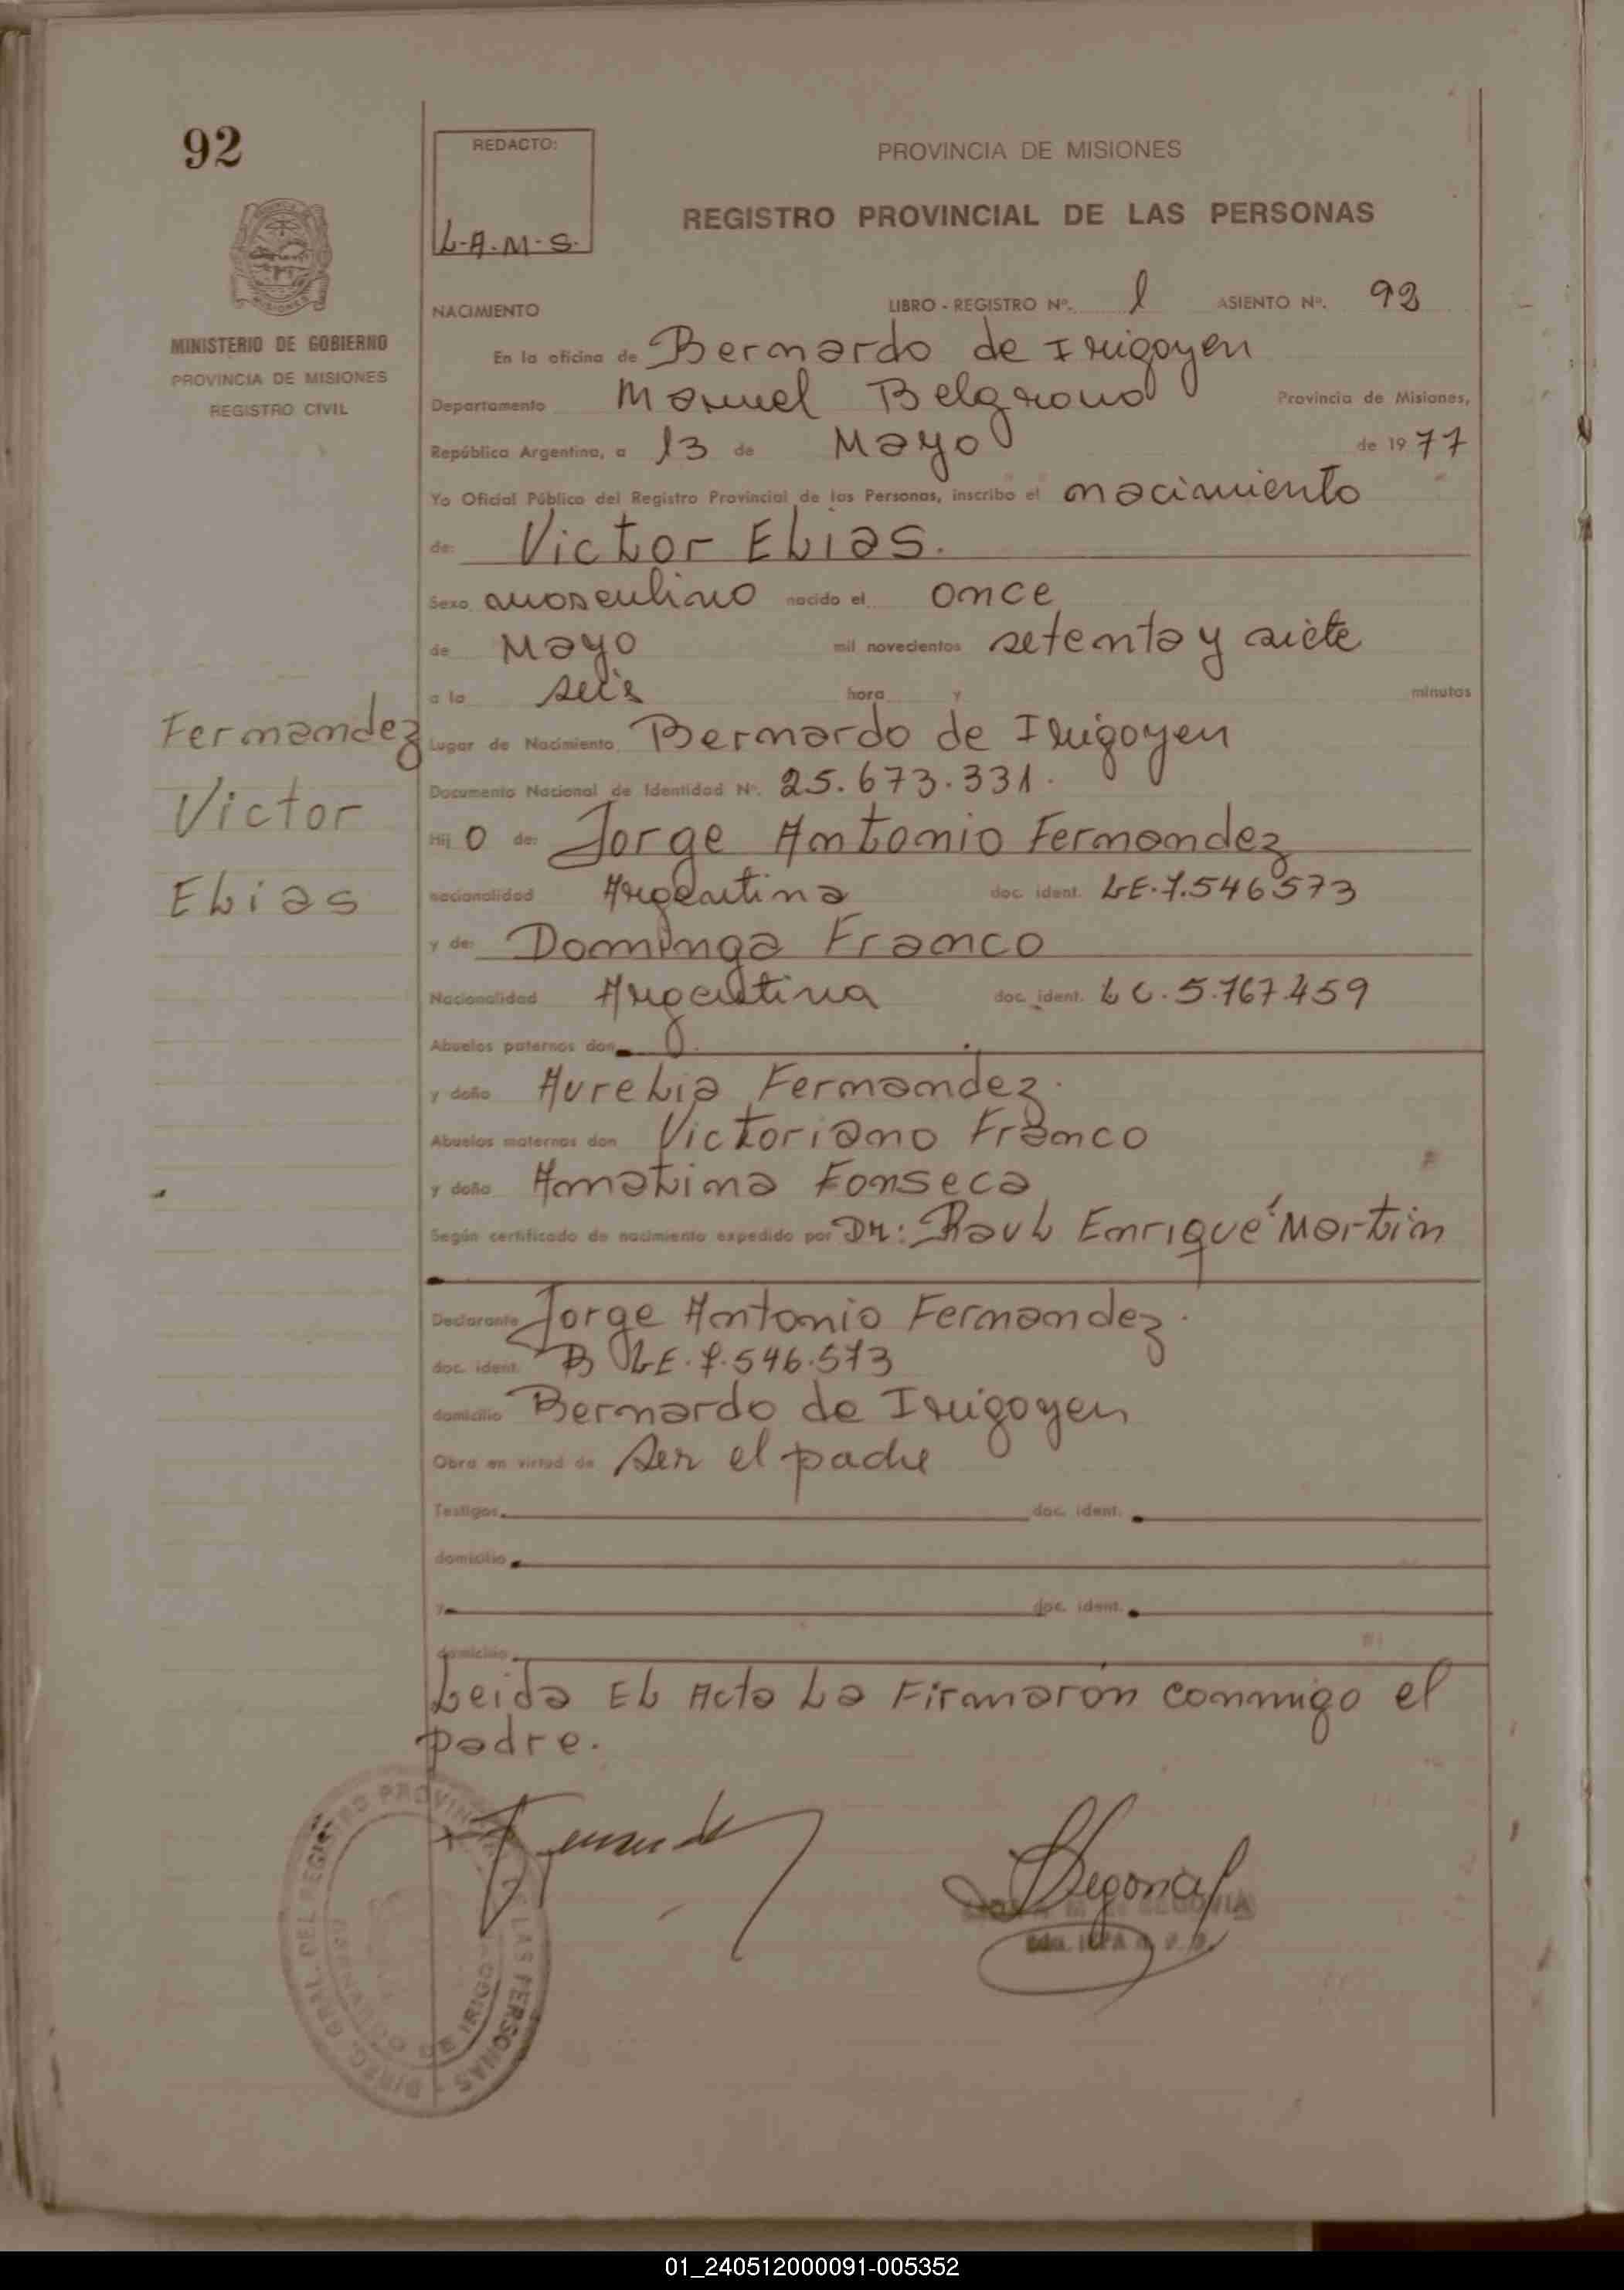 92
MINISTERIO DE GOBIERNO
PROVINCIA DE MISIONES
REGISTRO CIVIL
Fernandez
Victor
Elias
REDACTO:
L.A.M.S.
PROVINCIA DE MISIONES
REGISTRO PROVINCIAL DE LAS PERSONAS
NACIMIENTO LIBRO - REGISTRO Nº. 1 ASIENTO Nº. 92
En la oficina de Bernardo de Irigoyen
Departamento Manuel Belgrano Provincia de Misiones,
República Argentina, a 13 de Mayo de 1977
Yo Oficial Público del Registro Provincial de las Personas, inscribo el nacimiento
de: Victor Elias.
Sexo masculino nacido el once
de Mayo mil novecientos setenta y siete
a la seis hora y minutos
Lugar de Nacimiento Bernardo de Irigoyen
Documento Nacional de Identidad Nº. 25.673.331.
Hij o de: Jorge Antonio Fernandez
nacionalidad Argentina doc. ident. LE.7.546573
y de: Dominga Franco
Nacionalidad Argentina doc. ident. LC.5.767.459
Abuelos paternos don
y doña Aurelia Fernandez.
Abuelos maternos don Victoriano Franco
y doña Anatina Fonseca
Según certificado de nacimiento expedido por Dr: Raul Enrique Martin
Declarante Jorge Antonio Fernandez.
doc. ident. LE.7.546.573
domicilio Bernardo de Irigoyen
Obra en virtud de ser el padre
Testigos doc. ident.
domicilio
y doc. ident.
domicilio
Leida El Acta La Firmaron conmigo el
padre.
DIREC. GRAL. DEL REGISTRO PROVINCIAL DE LAS PERSONAS
01_240512000091-005352